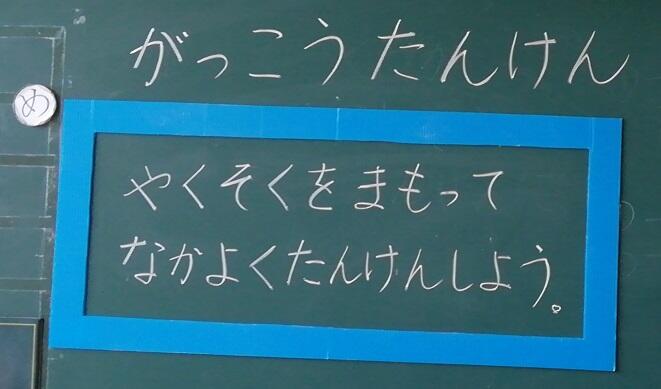 がっこうたんけん
め
やくそくをまもって
なかよくたんけんしよう。